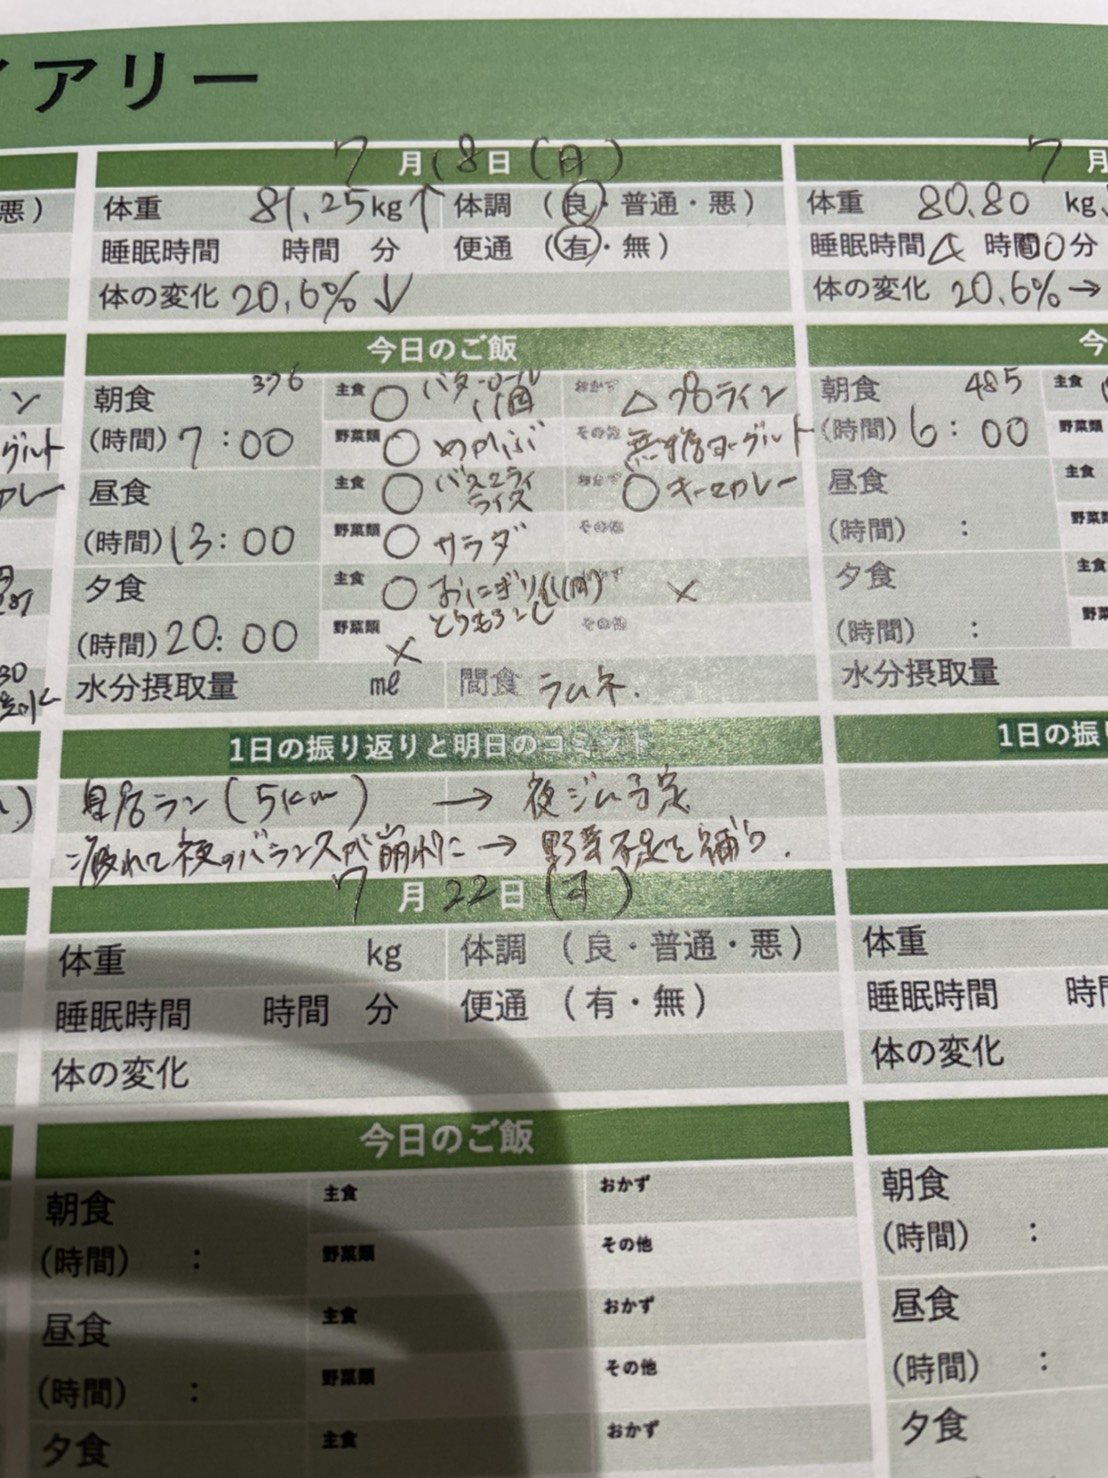 アリー
7月18日(月)
体重 81.25kg↑ 体調 (良・普通・悪)
睡眠時間 時間 分 便通 (有・無)
体の変化 20.6%↓
今日のご飯
朝食 376 主食 ○ バターロール 1個 おかず △
(時間) 7:00 野菜類 ○ めかぶ その他 無糖ヨーグルト
昼食 主食 ○ ライス おかず ○ キーマカレー
(時間) 13:00 野菜類 ○ サラダ その他
夕食 主食 ○ おにぎり(1個) ×
とうもろこし
(時間) 20:00 野菜類 × その他
水分摂取量 ml 間食 ラムネ.
1日の振り返りと明日のコミット
皇居ラン(5km) → 夜ジム予定
疲れて夜のバランスが崩れた → 野菜不足を補う.
7月22日
体重 kg 体調 (良・普通・悪)
睡眠時間 時間 分 便通 (有・無)
体の変化
今日のご飯
朝食 主食 おかず
(時間) : 野菜類 その他
昼食 主食 おかず
(時間) : 野菜類 その他
夕食 主食 おかず
7月
体重 80.80 kg
睡眠時間 4 時間 0分
体の変化 20.6%→
朝食 485 主食
(時間) 6:00 野菜類
昼食 主食
(時間) : 野菜類
夕食 主食
(時間) : 野菜類
水分摂取量
1日の振り
体重
睡眠時間
体の変化
朝食
(時間) :
昼食
(時間) :
夕食
悪)